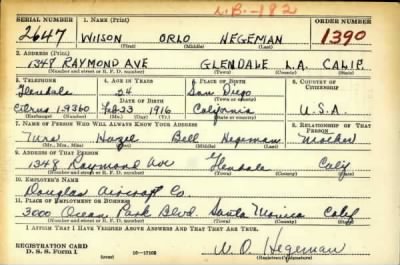 L.B.-182
SERIAL NUMBER 1. NAME (Print) ORDER NUMBER
2647 WILSON ORLO HEGEMAN 1390
(First) (Middle) (Last)
2. ADDRESS (Print)
1348 RAYMOND AVE GLENDALE L.A. CALIF.
(Number and street or R. F. D. number) (Town) (County) (State)
3. TELEPHONE 4. AGE IN YEARS 5. PLACE OF BIRTH 6. COUNTRY OF CITIZENSHIP
Glendale 24 San Diego
DATE OF BIRTH (Town or county)
Citrus 1-9360 Feb. 23 1916 California U.S.A.
(Exchange) (Number) (Mo.) (Day) (Yr.) (State or country)
7. NAME OF PERSON WHO WILL ALWAYS KNOW YOUR ADDRESS 8. RELATIONSHIP OF THAT PERSON
Mrs Hazel Bell Hegeman Mother
(Mr., Mrs., Miss) (First) (Middle) (Last)
9. ADDRESS OF THAT PERSON
1348 Raymond Ave Glendale Calif
(Number and street or R. F. D. number) (Town) (County) (State)
10. EMPLOYER'S NAME
Douglas Aircraft Co.
11. PLACE OF EMPLOYMENT OR BUSINESS
3000 Ocean Park Blvd. Santa Monica Calif
(Number and street or R. F. D. number) (Town) (County) (State)
I AFFIRM THAT I HAVE VERIFIED ABOVE ANSWERS AND THAT THEY ARE TRUE.
REGISTRATION CARD
D. S. S. Form 1 (over) 16-17105 W. O. Hegeman
(Registrant's signature)